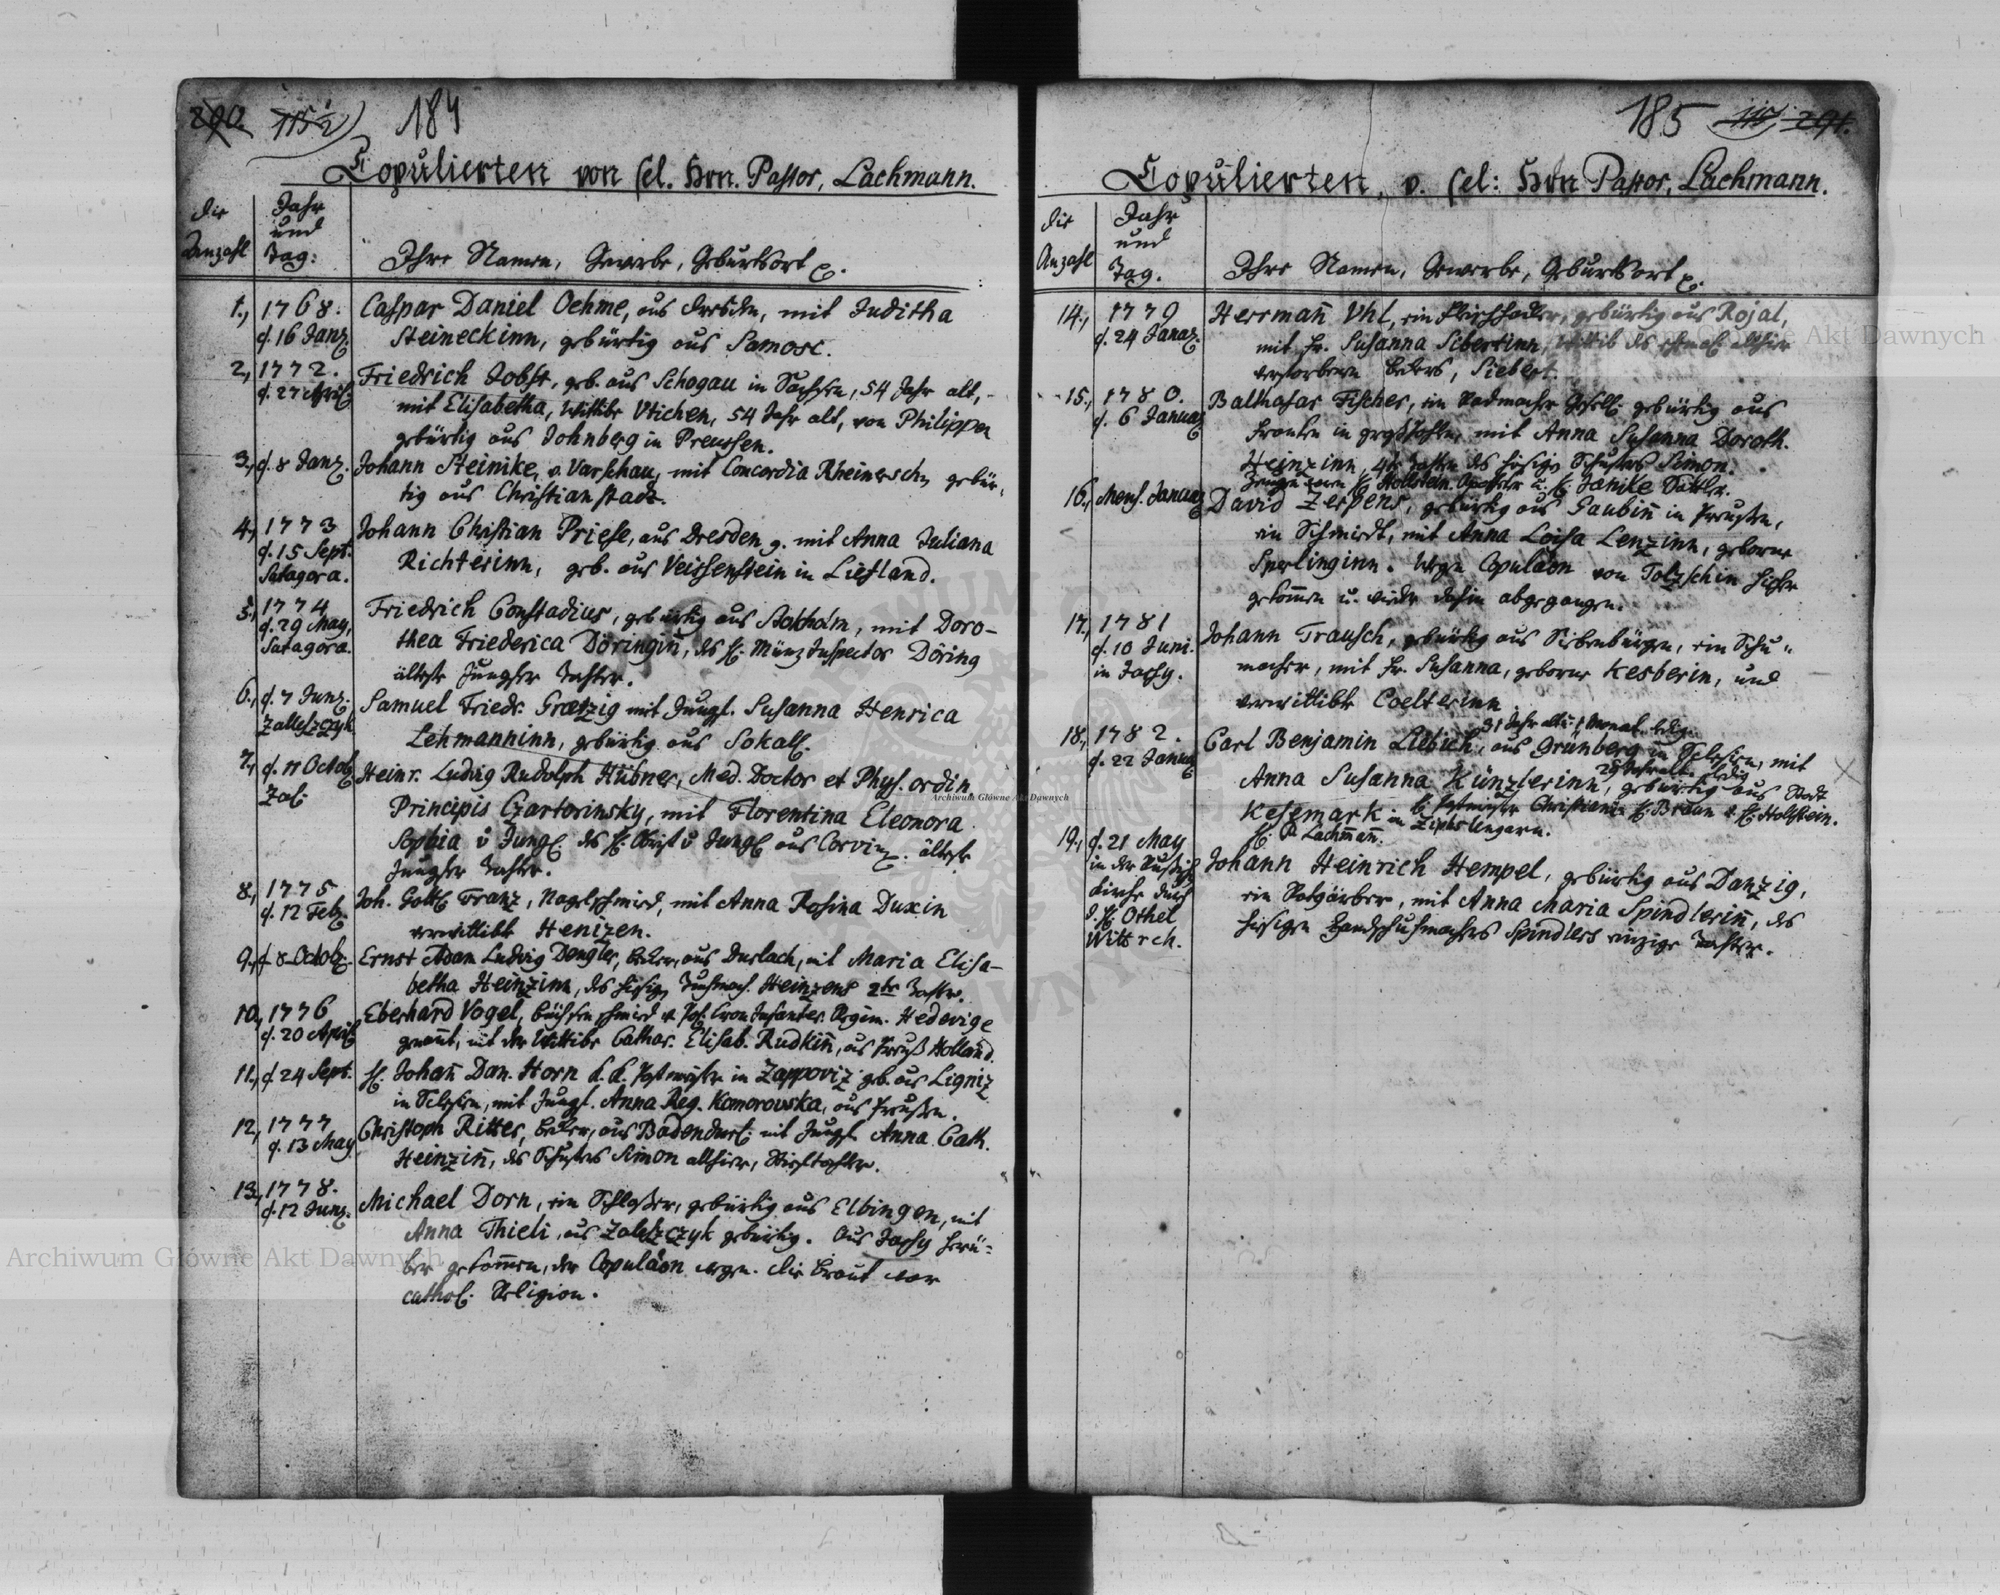 290. 115½ 184
Copulierten von sel. Hrn. Pastor, Lachmann.
Die Anzahl
Jahr und Tag:
Ihre Namen, Gewerbe, Geburtsort
1., 1768. d. 16 Janr. Caspar Daniel Oehme, aus Dresden, mit Juditha
Steineckinn, gebürtig aus Samosc.
2., 1772. d. 27 April: Friedrich Jobst, geb. aus Schogau in Sachsen, 54 Jahr alt,
mit Elisabetha, Wittibe Utichen, 54 Jahr alt, von Philippen
gebürtig aus Johnberg in Preussen.
3., d. 8 Janr. Johann Steinike, v. Varschau, mit Concordia Rheinersch, gebür-
tig aus Christianstadt.
4., 1773 d. 15 Sept. Satagora. Johann Christian Priese, aus Dresden g. mit Anna Juliana
Richterinn, geb. aus Veissenstein in Liefland.
5., 1774 d. 29 May, Satagora. Friedrich Constadius, gebürtig aus Stokholm, mit Doro-
thea Friederica Döringin, des H. Münz Inspector Döring
älteste Jungfer Tochter.
6., d. 7 Junz. Zalleszczyk Samuel Friedr. Graetzig mit Jungf. Susanna Henrica
Lehmanninn, gebürtig aus Sokall.
7., d. 11 Octob. Zal: Heinr. Ludvig Rudolph Hübner, Med. Doctor et Phys. ordin
Principis Czartorinsky, mit Florentina Eleonora
Sophia v Jungf. des H. Obrist v Jungf aus Corvin. älteste
Jungfer Tochter.
8., 1775 d. 12 Febr. Joh. Gottf. Franz, Nagelschmied, mit Anna Rosina Duxin
verwittibt Henizen.
9., d. 8 Octob. Ernst Adam Ludvig Dengler, Beker, aus Durlach, mit Maria Elisa-
betha Heinzinn, des hiesign Tuchmach. Heinzens 2te Tochter.
10., 1776 d. 20 April Eberhard Vogel, Büchsenschmied v. Cron Infanter. Regim. Hedevige
genannt, mit der Wittibe Cathar. Elisab. Rudkin, aus Preuß Holland.
11., d. 24 Sept. H. Johan Dan. Horn k. k. Postmeister in Zappoviz geb. aus Ligniz
in Schlesien, mit Jungf. Anna Reg. Komorovska, aus Preußen.
12., 1777 d. 13 May Christoph Ritter, Beker, aus Badendurl: mit Jungf. Anna Cath.
Heinzin, des Schusters Simon allhier, Stieftochter.
13., 1778. d. 12 Junz. Michael Dorn, ein Schloßer, gebürtig aus Elbingen, mit
Anna Thieli, aus Zaleszczyk gebürtig. Aus Jassy herü-
ber gekommen, der Copulaon wegen. Die Braut war
cathol. Religion.
185 115 291.
Copulierten, v. sel: Hrn Pastor, Lachmann.
Die Anzahl
Jahr und Tag.
Ihre Namen, Gewerbe, Geburtsort
14., 1779 d. 24 Januar. Herrman Uhl, ein Fleischhaker, gebürtig aus Rojal,
mit Fr. Susanna Sibertinn, Wittib des allhier
verstorbenen Bekers, Siebert.
15., 1780. d. 6 Januar Balthasar Fischer, ein Radmacher Gesell gebürtig aus
Franken in mit Anna Susanna Doroth.
Heinzinn, 4te Tochter des hiesign Schusters Simon.
Zeugen waren H. Hollstein Apotheker u. H. Janike Sattler.
16., Mens. Januar David Zerpens, gebürtig aus Gaubin in Preußen,
ein Schmiedt, mit Anna Loisa Lenzinn, geborne
Sperlinginn. Wegen Copulaon von Tolzschin hieher
gekommen u. wieder dahin abgegangen.
17., 1781 d. 10 Juni. in Jassy. Johann Trausch, gebürtig aus Siebenbürgen, ein Schu-
macher, mit Fr. Susanna, geborne Kesberin, und
verwittibte Coelterinn
31 Jahr alt u. 1 Monat. ledig
18., 1782. d. 22 Januar Carl Benjamin Liebich, aus Grünberg in Schlesien, mit
29 Jahr alt. ledig
Anna Susanna Künzlerinn, gebürtig aus Stadt
Kesemark in Zips Ungarn. H. Postmeister Christiani. H. Braun u. H. Holstein.
H. P. Lachmann.
19., d. 21 May in der Kirche durch d. H. Othel Wittrch. Johann Heinrich Hempel, gebürtig aus Danzig,
ein Rotgärber, mit Anna Maria Spindlerin, des
hiesigen Handschuhmachers Spindlers einzige Tochter.
Archiwum Główne Akt Dawnych
Archiwum Główne Akt Dawnych
Archiwum Główne Akt Dawnych